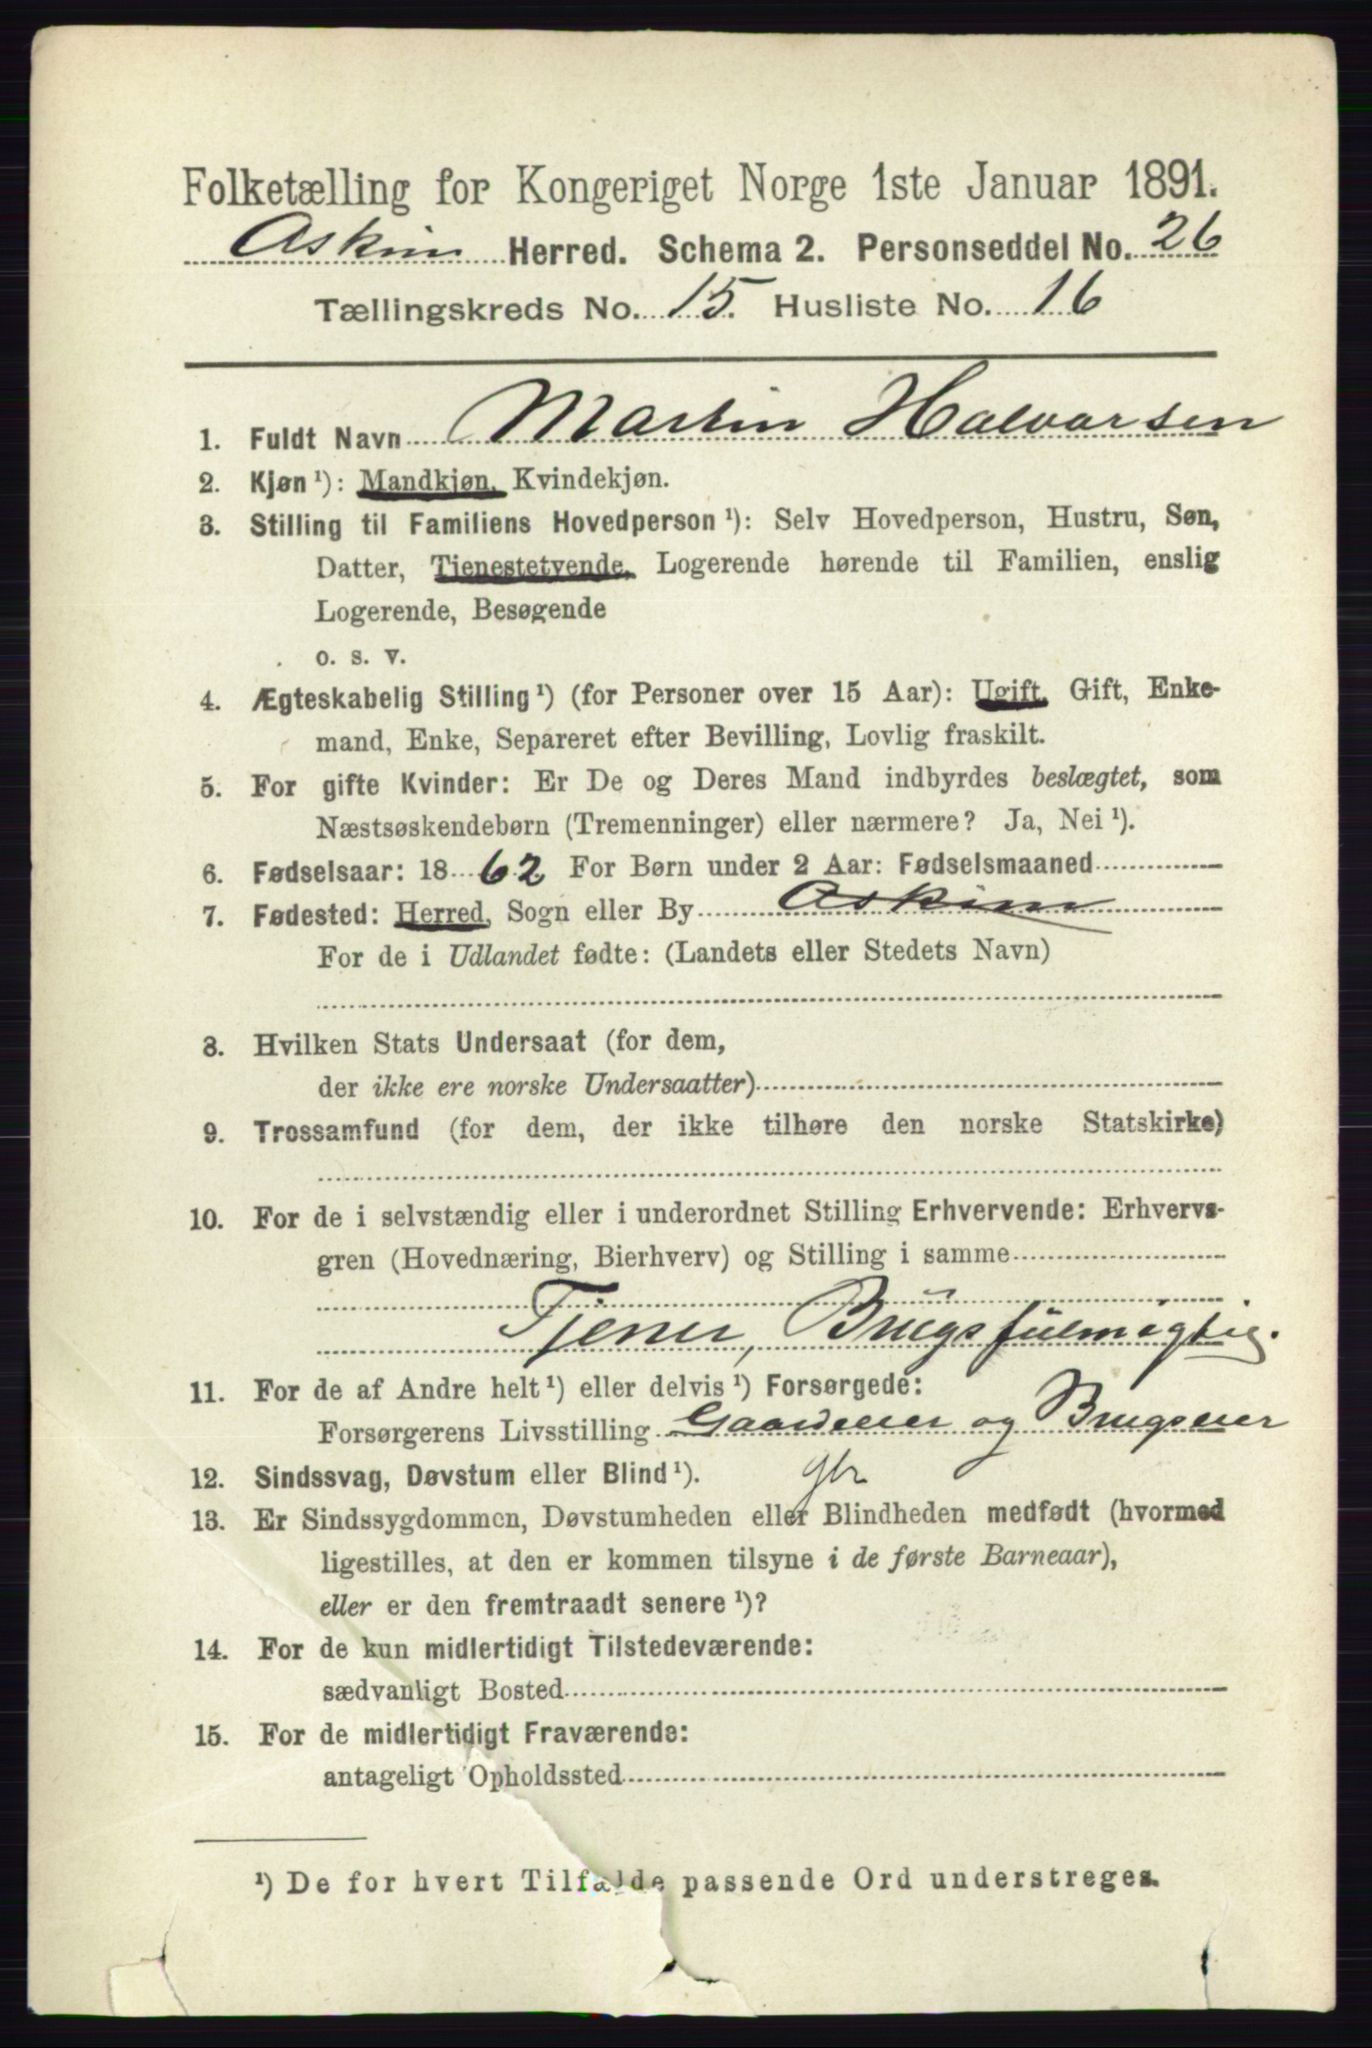 Folketælling for Kongeriget Norge 1ste Januar 1891.
Askim Herred. Schema 2. Personseddel No. 26
Tællingskreds No. 15. Husliste No. 16
1. Fuldt Navn Martin Halvorsen
2. Kjøn ¹): Mandkjøn, Kvindekjøn.
3. Stilling til Familiens Hovedperson ¹): Selv Hovedperson, Hustru, Søn,
Datter, Tjenestetyende, Logerende hørende til Familien, enslig
Logerende, Besøgende
o. s. v.
4. Ægteskabelig Stilling ¹) (for Personer over 15 Aar): Ugift, Gift, Enke-
mand, Enke, Separeret efter Bevilling, Lovlig fraskilt.
5. For gifte Kvinder: Er De og Deres Mand indbyrdes beslægtet, som
Næstsøskendebørn (Tremenninger) eller nærmere? Ja, Nei ¹).
6. Fødselsaar: 18 62 For Børn under 2 Aar: Fødselsmaaned
7. Fødested: Herred, Sogn eller By Askim
For de i Udlandet fødte: (Landets eller Stedets Navn)
8. Hvilken Stats Undersaat (for dem,
der ikke ere norske Undersaatter)
9. Trossamfund (for dem, der ikke tilhøre den norske Statskirke)
10. For de i selvstændig eller i underordnet Stilling Erhvervende: Erhvervs-
gren (Hovednæring, Bierhverv) og Stilling i samme
Tjener, Brugsfulmægtig.
11. For de af Andre helt ¹) eller delvis ¹) Forsørgede:
Forsørgerens Livsstilling Gaardeier og Brugseier
12. Sindssvag, Døvstum eller Blind ¹).
13. Er Sindssygdommen, Døvstumheden eller Blindheden medfødt (hvormed
ligestilles, at den er kommen tilsyne i de første Barneaar),
eller er den fremtraadt senere ¹)?
14. For de kun midlertidigt Tilstedeværende:
sædvanligt Bosted
15. For de midlertidigt Fraværende:
antageligt Opholdssted
¹) De for hvert Tilfælde passende Ord understreges.